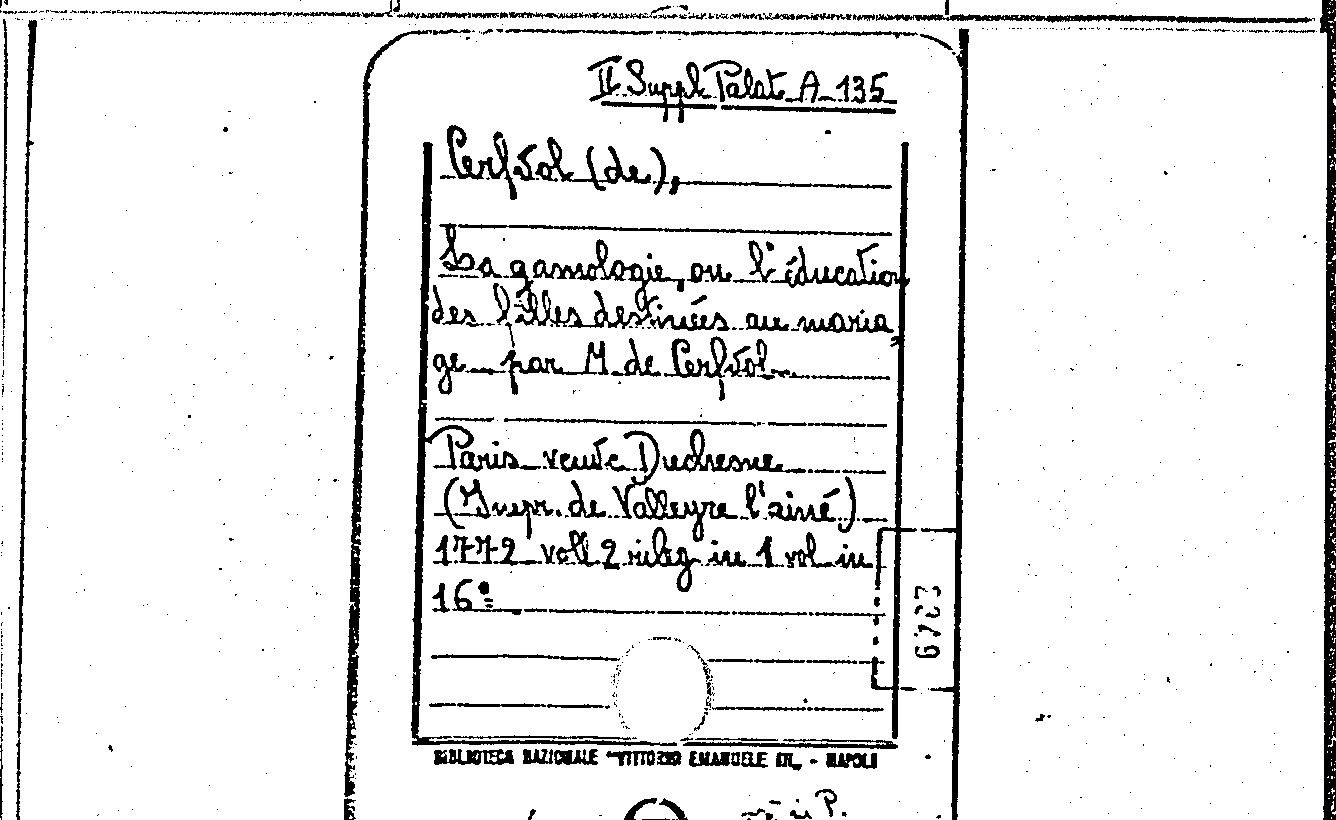 II Suppl. Palat. A 135
Cerfvol (de),
La gamologie, ou l'éducation
des filles destinées au maria
ge par M. de Cerfvol.
Paris veuve Duchesne
(Impr. de Valleyre l'ainé)
1772 voll 2 rileg in 1 vol in
16°
BIBLIOTECA NAZIONALE "VITTORIO EMANUELE III" - NAPOLI